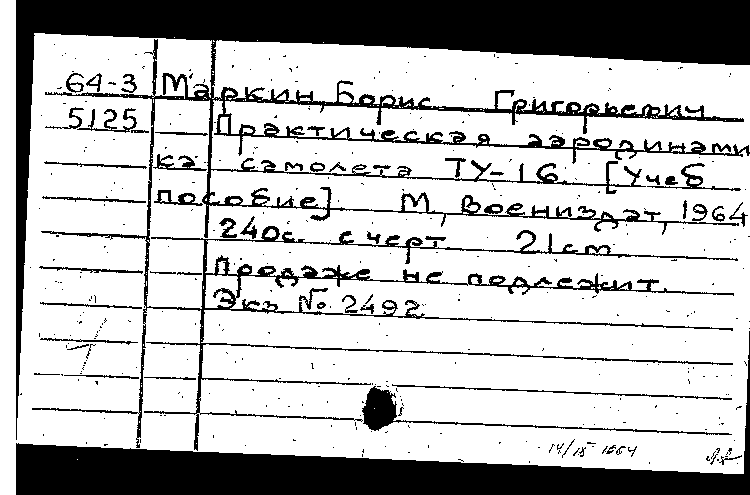 64-3 Маркин, Борис Григорьевич
5125 Практическая аэродинами
ка самолета ТУ-16. [Учеб.
пособие]. М., Воениздат, 1964
240с. с черт. 21см.
Продаже не подлежит.
Экз № 2492
14/18